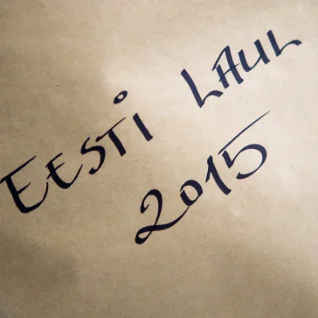 EESTI LAUL
2015